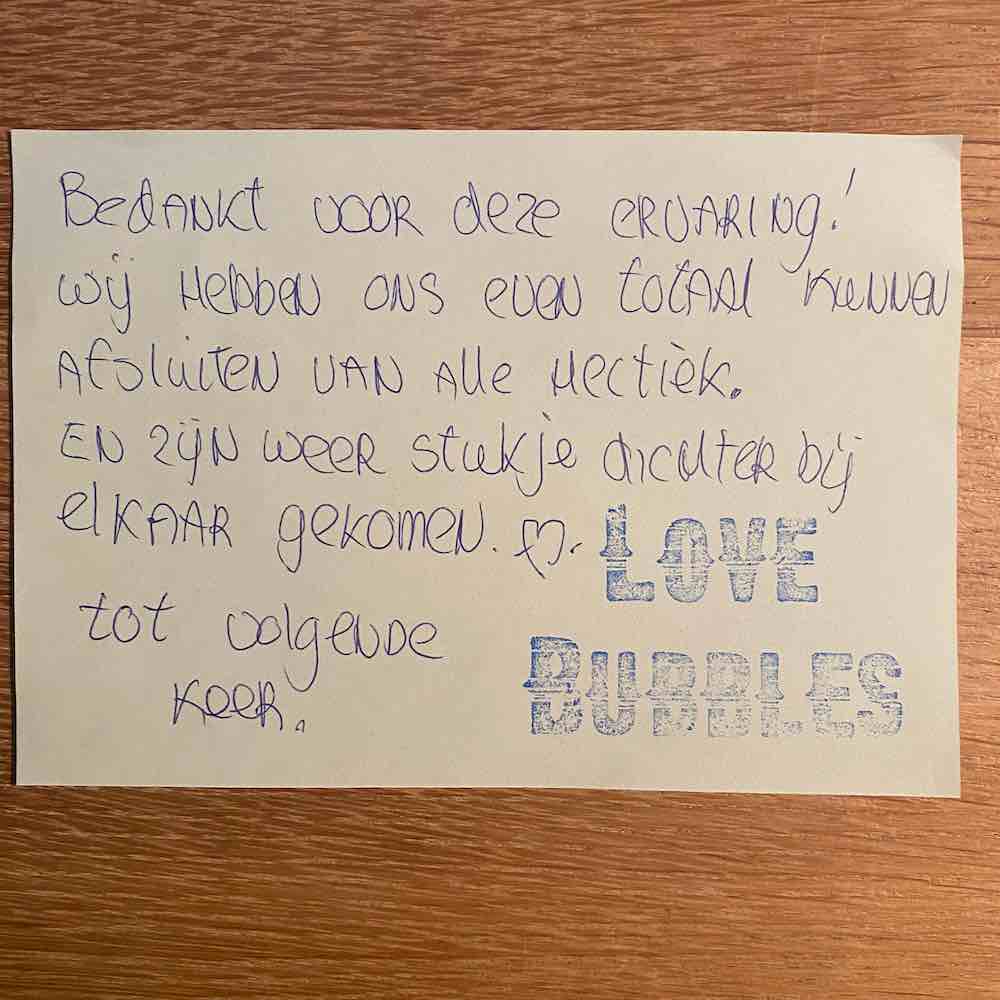 Bedankt voor deze ervaring!
wij hebben ons even totaal kunnen
afsluiten van alle hectiek.
En zijn weer stukje dichter bij
elkaar gekomen. ♡.
Love
tot volgende
Bubbles
keer.